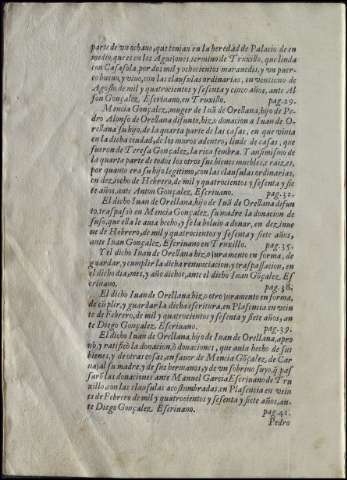 parte de vn ochauo, que tenian en la heredad de Palacio de en
medio, que es en los Aguijones termino de Truxillo, que linda
con Casasola, por dos mil y ochocientos marauedis, y vn puer-
co bueno, y viuo, con las clausulas ordinarias, en veinticinco de
Agosto de mil y quatrocientos y sesenta y cinco años, ante Al
fon Gonçalez, Escriuano, en Truxillo. pag.29.
Mencia Gonçalez, muger de Iuã de Orellana, hijo de Pe-
dro Alonso de Orellana difunto, hizo donacion a Iuan de O-
rellana su hijo, de la quarta parte de las casas, en que viuia
en la dicha ciudad, de los muros adentro, linde de casas, que
fueron de Teresa Gonçalez, la rica fembra. Y ansimismo de
la quarta parte de todos los otros sus bienes muebles, e raizes,
por quanto era su hijo legitimo, con las clausulas ordinarias,
en dezioc ho de Hebrero, de mil y quatrocientos y sesenta y sie
te años, ante Anton Gonçalez, Escriuano. pag.32.
El dicho Iuan de Orellana, hijo de Iuã de Orellana difun
to, traspassò en Mencia Gonçalez, su madre la donacion de
suso, que ella le auia hecho, y se la boluio a donar, en dezinue
ue de Hebrero, de mil y quatrocientos y sesenta y siete años,
ante Iuan Gonçalez, Escriuano en Truxillo. pag.35.
Y el dicho Iuan de Orellana hizo juramento en forma, de
guardar, y cumplir la dicha renunciacion, y traspassacion, en
el dicho dia, mes, y año dichos, ante el dicho Iuan Gõçalez, Es
criuano. pag.38.
El dicho Iuan de Orellana, hizo otro juramento en forma,
de cũplir, y guardar la dicha escritura, en Plasencia en vein
te de Febrero, de mil y quatrocientos y sesenta y siete años, an
te Diego Gonçalez, Escriuano. pag.39.
El dicho Iuan de Orellana, hijo de Iuan de Orellana, apro
uò, y ratificò la donacion, ò donaciones, que auia hecho de sus
bienes, y de otras cosas, en fauor de Mencia Gõçalez, de Car
uajal su madre, y de sus hermanos, y de vn sobrino suyo, q̃ pas
sarõ las donaciones ante Manuel Garcia Escriuano de Tru
xillo, con las clausulas acostumbradas, en Plasencia en vein
te de Febrero de mil y quatrocientos y sesenta y siete años, an-
te Diego Gonçalez, Escriuano. pag.41.
Pedro